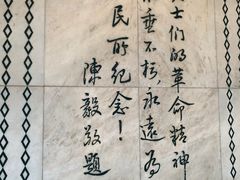 士们的革命精神
垂不朽，永遠为
民所纪念！
陳毅敬题